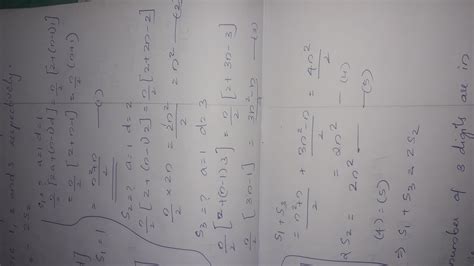 1, 2 and 3 respectively.
2S₂
S₁ = ? a=1 d=1
n/2 [2a+(n-1)d] = n/2 [2+(n-1)1]
n/2 [2+n-1] = n/2 (n+1)
S₁ = n²+n/2 — (1)
S₂ = ? a=1 d=2
n/2 [2+(n-1)2] = n/2 [2+2n-2]
n/2 × 2n = 2n²/2 = n² — (2)
S₃ = ? a=1 d=3
n/2 [2+(n-1)3] = n/2 [2+3n-3]
n/2 [3n-1] = 3n²-n/2
S₁+S₃
= n²+n/2 + 3n²-n/2 = 4n²/2
= 2n² — (4)
2S₂ = 2n² — (5)
(4) = (5)
⇒ S₁+S₃ = 2S₂
number of 3 digits are in